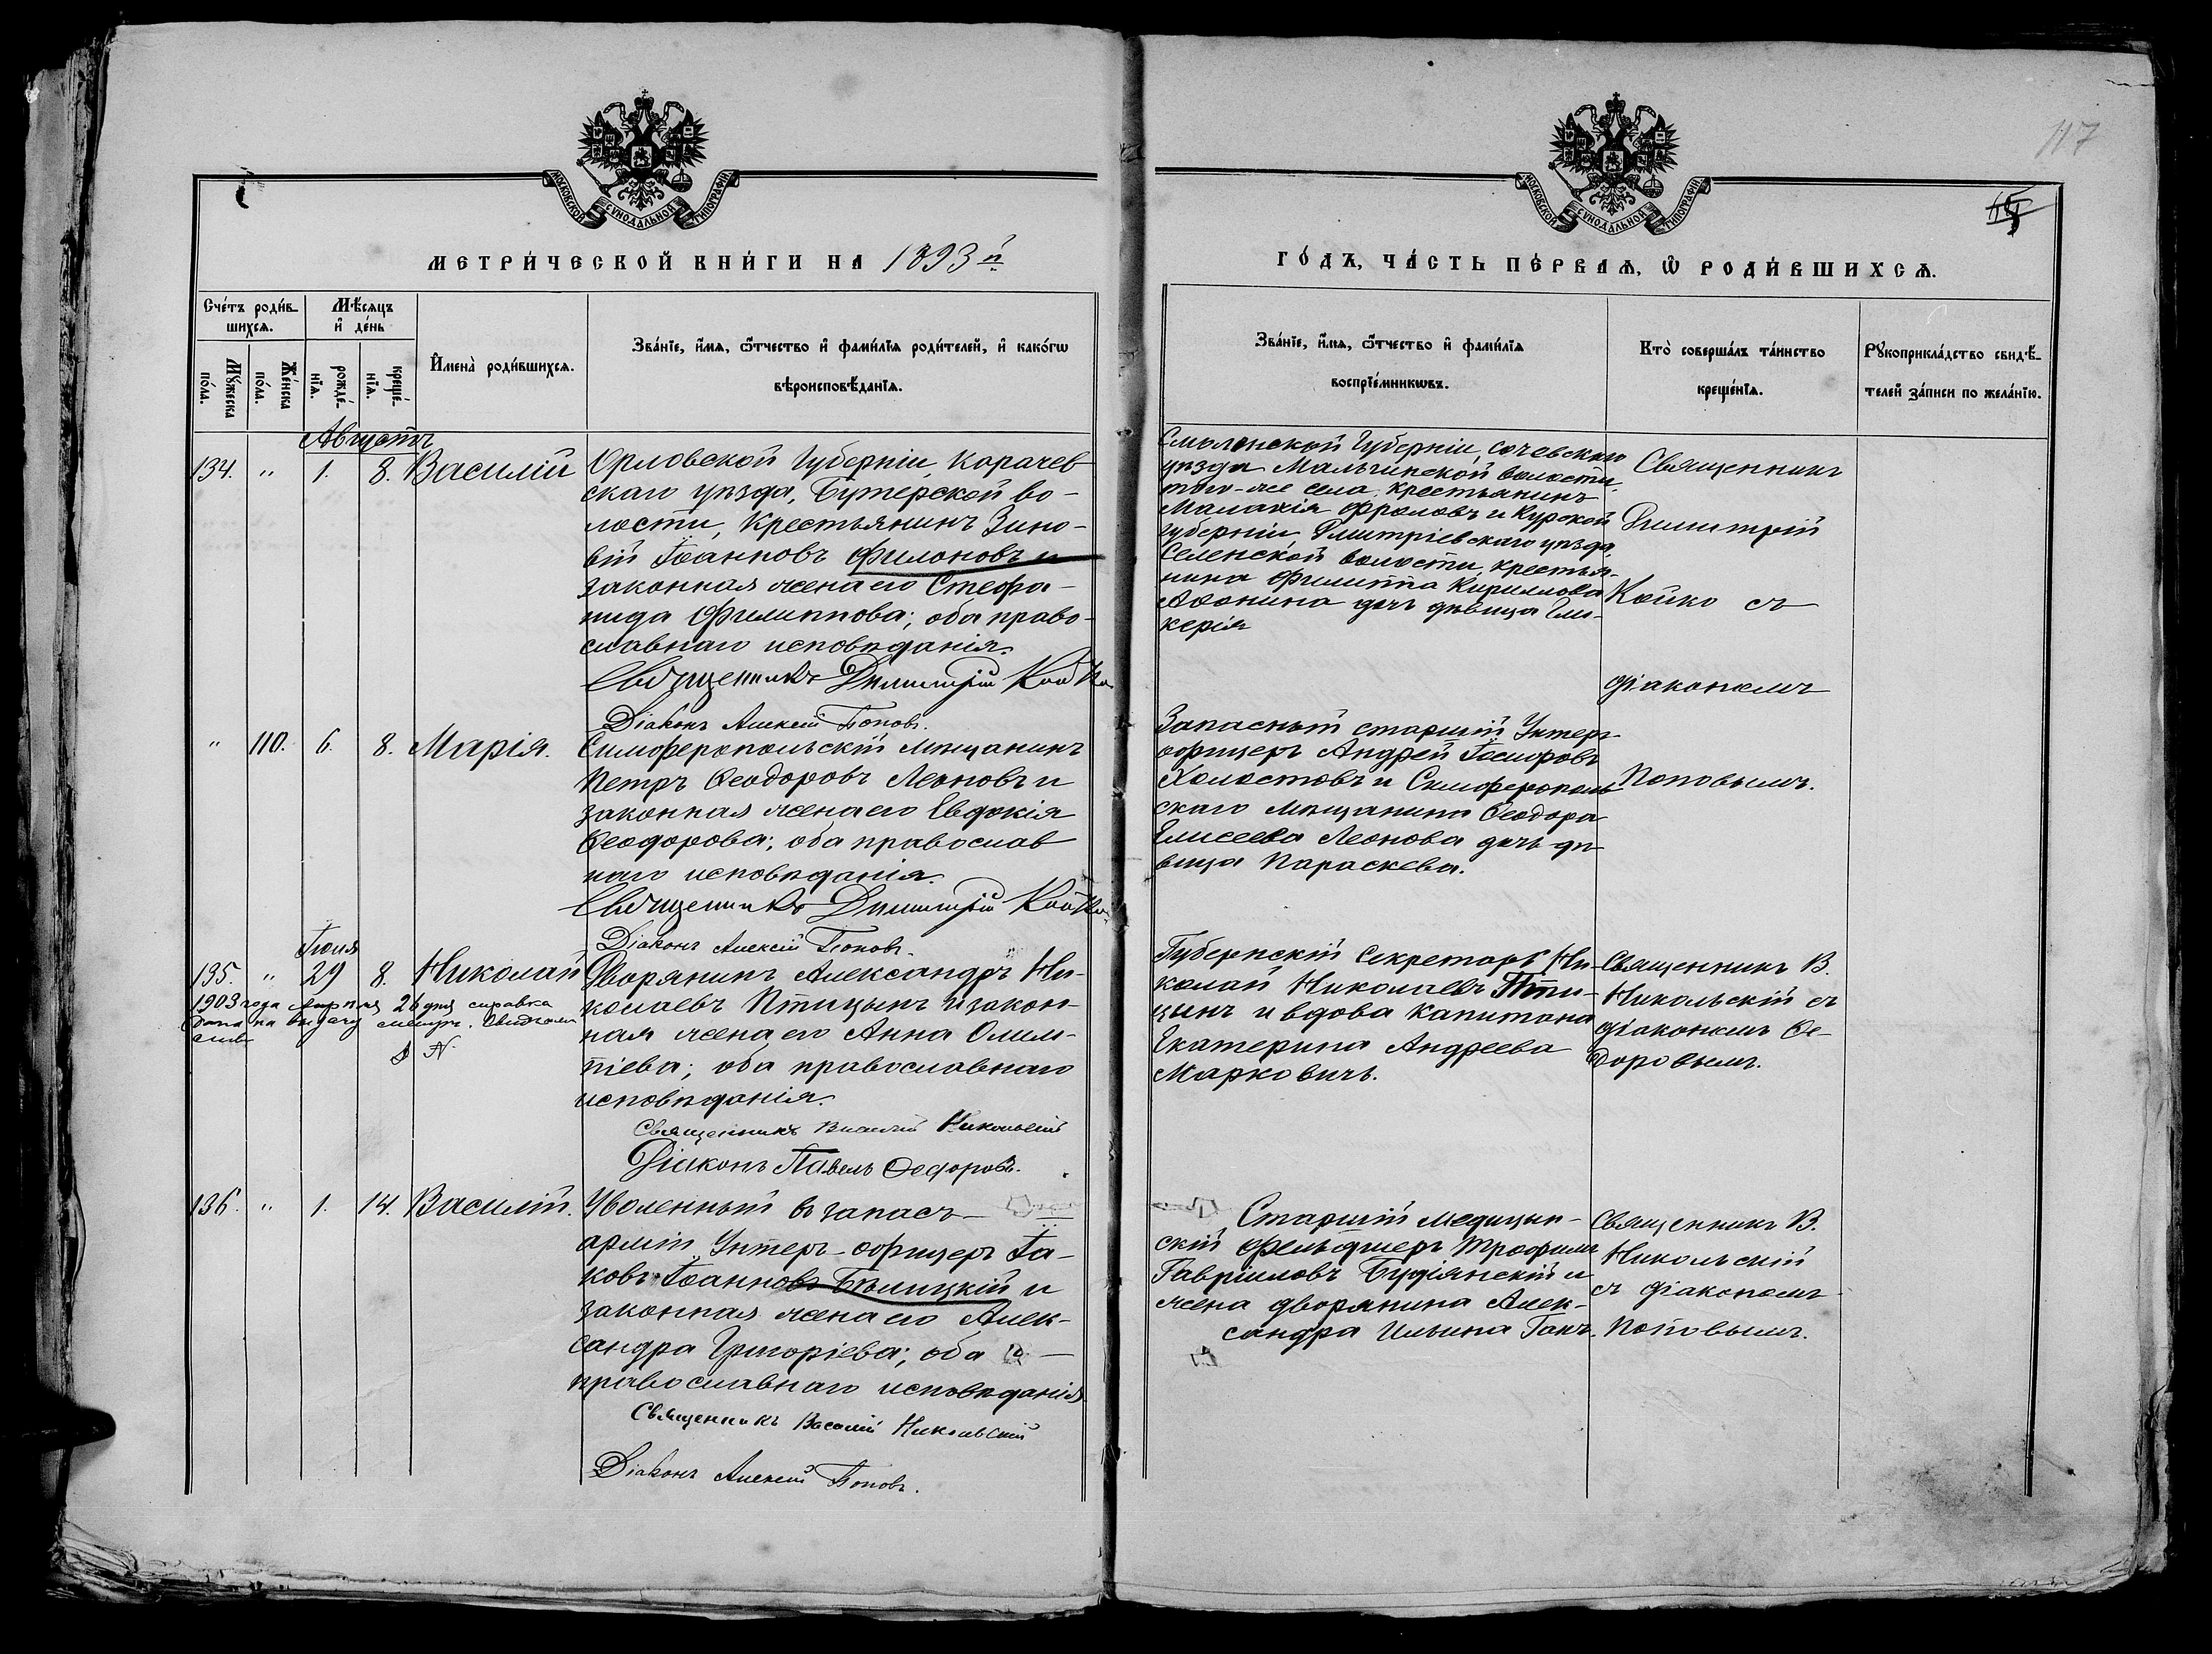 117
МОСКОВСКОЙ СѴНОДАЛЬНОЙ ТИПОГРАФІИ
МОСКОВСКОЙ СѴНОДАЛЬНОЙ ТИПОГРАФІИ
МЕТРИ́ЧЕСКОЙ КНИ́ГИ НА 1893 й
ГО́ДЪ, ЧА́СТЬ ПЕ́РВАѦ, Ѡ҆ РОДИ́ВШИХСѦ.
Сче́тъ роди́в-
шихсѧ.
Мꙋ́жеска
по́ла.
Же́нска
по́ла.
Мѣ́сѧцъ
и҆ де́нь
рожде́-
нїѧ.
креще́-
нїѧ.
И҆мена̀ роди́вшихсѧ.
Зва́нїе, и҆́мѧ, ѻ҆́тчество и҆ фами́лїѧ роди́телей, и҆ како́гѡ
вѣроисповѣ́данїѧ.
Зва́нїе, и҆́мѧ, ѻ҆́тчество и҆ фами́лїѧ
воспрїе́мникѡвъ.
Кто̀ соверша́лъ та́инство
креще́нїѧ.
Рꙋкоприкла́дство свидѣ́-
телей за́писи по жела́нїю.
Августъ
134. " 1. 8. Василій
Орловской Губерніи, Карачев
скаго уѣзда, Бутерской во-
лости, Крестьянинъ Зино-
вій Іоанновъ Филоновъ и
законная жена его Стефа-
нида Филиппова; оба право-
славнаго исповѣданія.
Священникъ Димитрій Койко
Діаконъ Алексій Поповъ.
Смоленской Губерніи, Сычевскаго
уѣзда Мальчинской волости
того-же села, крестьянинъ
Малахія Фроловъ и Курской
Губерніи, Дмитріевскаго уѣзда,
Селенской волости, крестья-
нина Филиппа Кириллова
Афонина дочь дѣвица Гли-
керія
Священникъ
Димитрій
Койко съ
діакономъ
Поповымъ.
" 110. 6. 8. Марія.
Симферопольскій мѣщанинъ
Петръ Ѳеодоровъ Леоновъ и
законная жена его Евдокія
Ѳеодорова; оба православ
наго исповѣданія.
Священникъ Димитрій Койко
Діаконъ Алексій Поповъ.
Запасный старшій Унтеръ-
офицеръ Андрей Іосифовъ
Холостовъ и Симферополь
скаго мѣщанина Ѳеодора
Елисеева Леонова дочь дѣ
вица Параскева.
Іюля
135. " 29 8. Николай
1903 года марта 26 дня справка
дана на выдачу метрич. свидѣтель
ства
Дворянинъ Александръ Ни-
колаевъ Птицынъ и закон-
ная жена его Анна Олим-
піева; оба православнаго
исповѣданія.
Священникъ Василій Никольскій
Діаконъ Павелъ Ѳедоровъ.
Губернскій Секретарь Ни-
колай Николаевъ Пти-
цынъ и вдова Капитана
Екатерина Андреева
Марковичъ.
Священникъ В.
Никольскій съ
діакономъ Ѳе-
доровымъ.
136. " 1. 14. Василій.
Уволенный въ запасъ
арміи Унтеръ-офицеръ Іа-
ковъ Іоанновъ Бѣлицкій и
законная жена его Алек-
сандра Григоріева; оба
православнаго исповѣданія.
Священникъ Василій Никольскій
Діаконъ Алексій Поповъ.
Старшій медицин-
скій фельдшеръ Трофимъ
Гавріиловъ Будіянскій и
жена дворянина Алек-
сандра Ильина Ганъ.
Священникъ В.
Никольскій
съ діакономъ
Поповымъ.